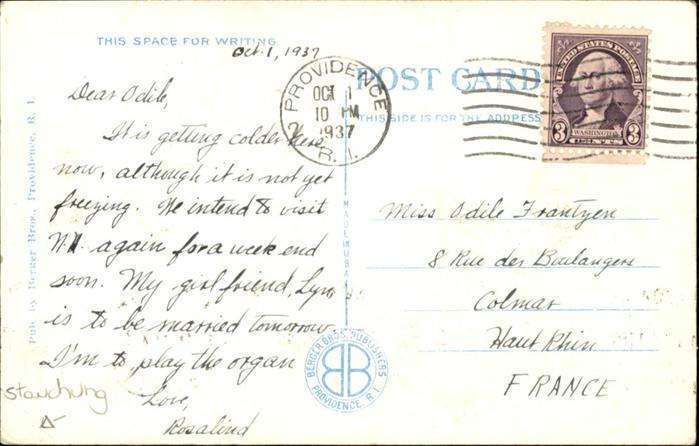 THIS SPACE FOR WRITING
Oct. 1, 1937
Dear Odile,
It is getting colder here
now, although it is not yet
freezing. We intend to visit
again for a week end
soon. My girl friend, Lyn
is to be married tomorrow
I'm to play the organ
Love,
Rosalind
Pub. by Berger Bros., Providence, R. I.
MADE IN U.S.A.
BERGER BROS. PUBLISHERS
BB
PROVIDENCE, R. I.
POST CARD
THIS SIDE IS FOR THE ADDRESS
PROVIDENCE
OCT 1
10 PM
1937
R. I.
2
UNITED STATES POSTAGE
WASHINGTON
3 CENTS 3
Miss Odile Frantzen
8 Rue des Boulangers
Colmar
Haut Rhin
FRANCE